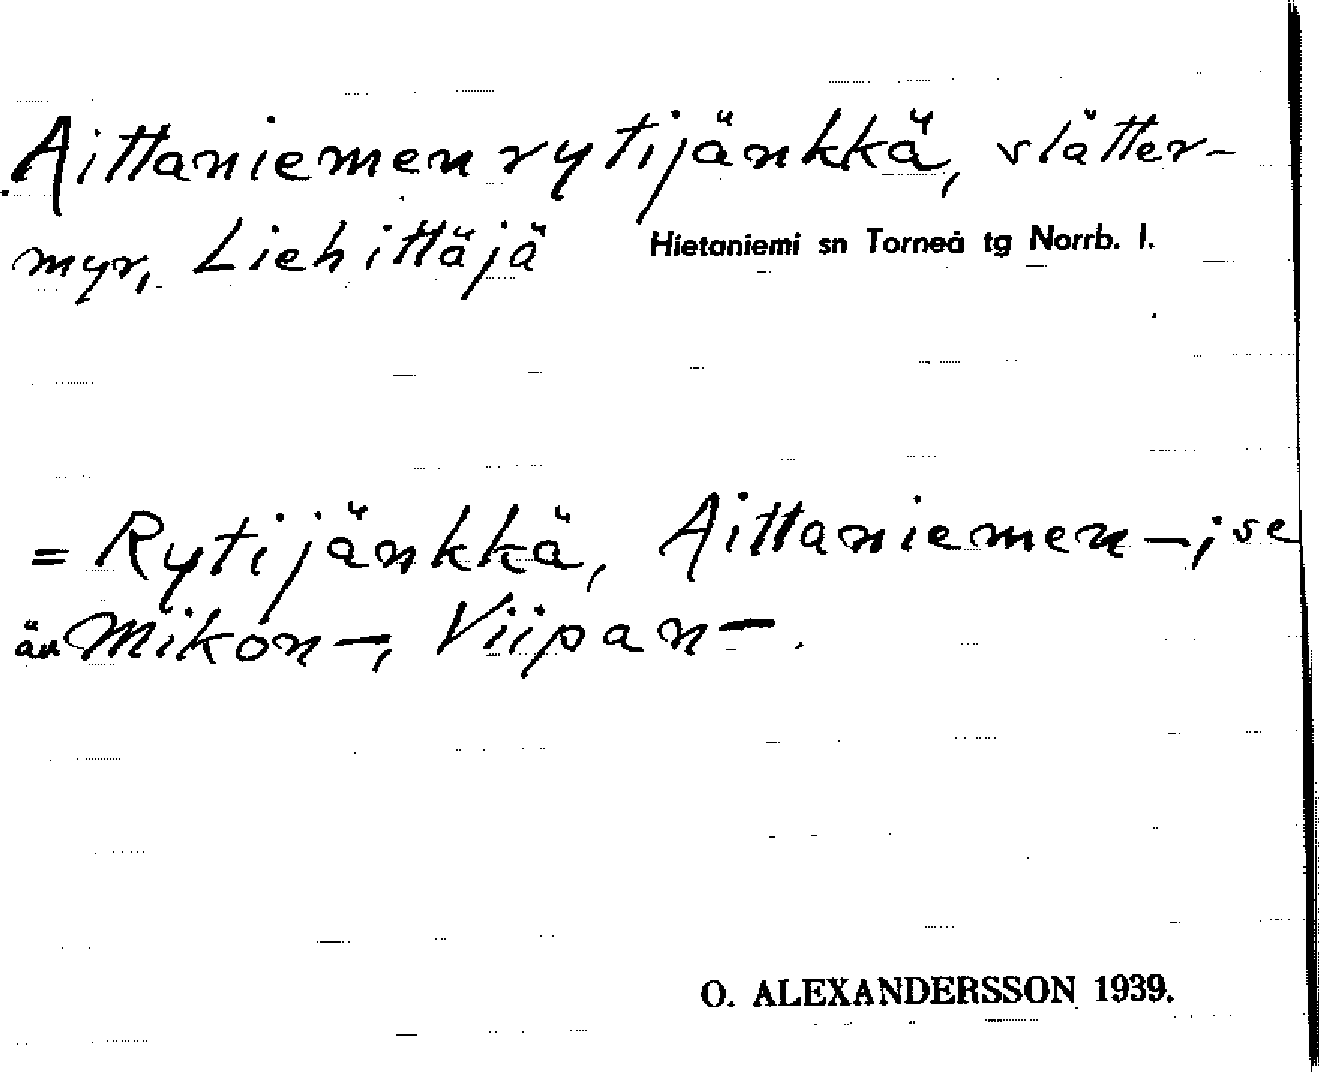 Aittaniemen rytijänkkä, slåtter-
myr, Liehittäjä Hietaniemi sn Torneå tg Norrb. l.
= Rytijänkkä, Aittaniemen –; se
än Mikon –, Viipan –.
O. ALEXANDERSSON 1939.